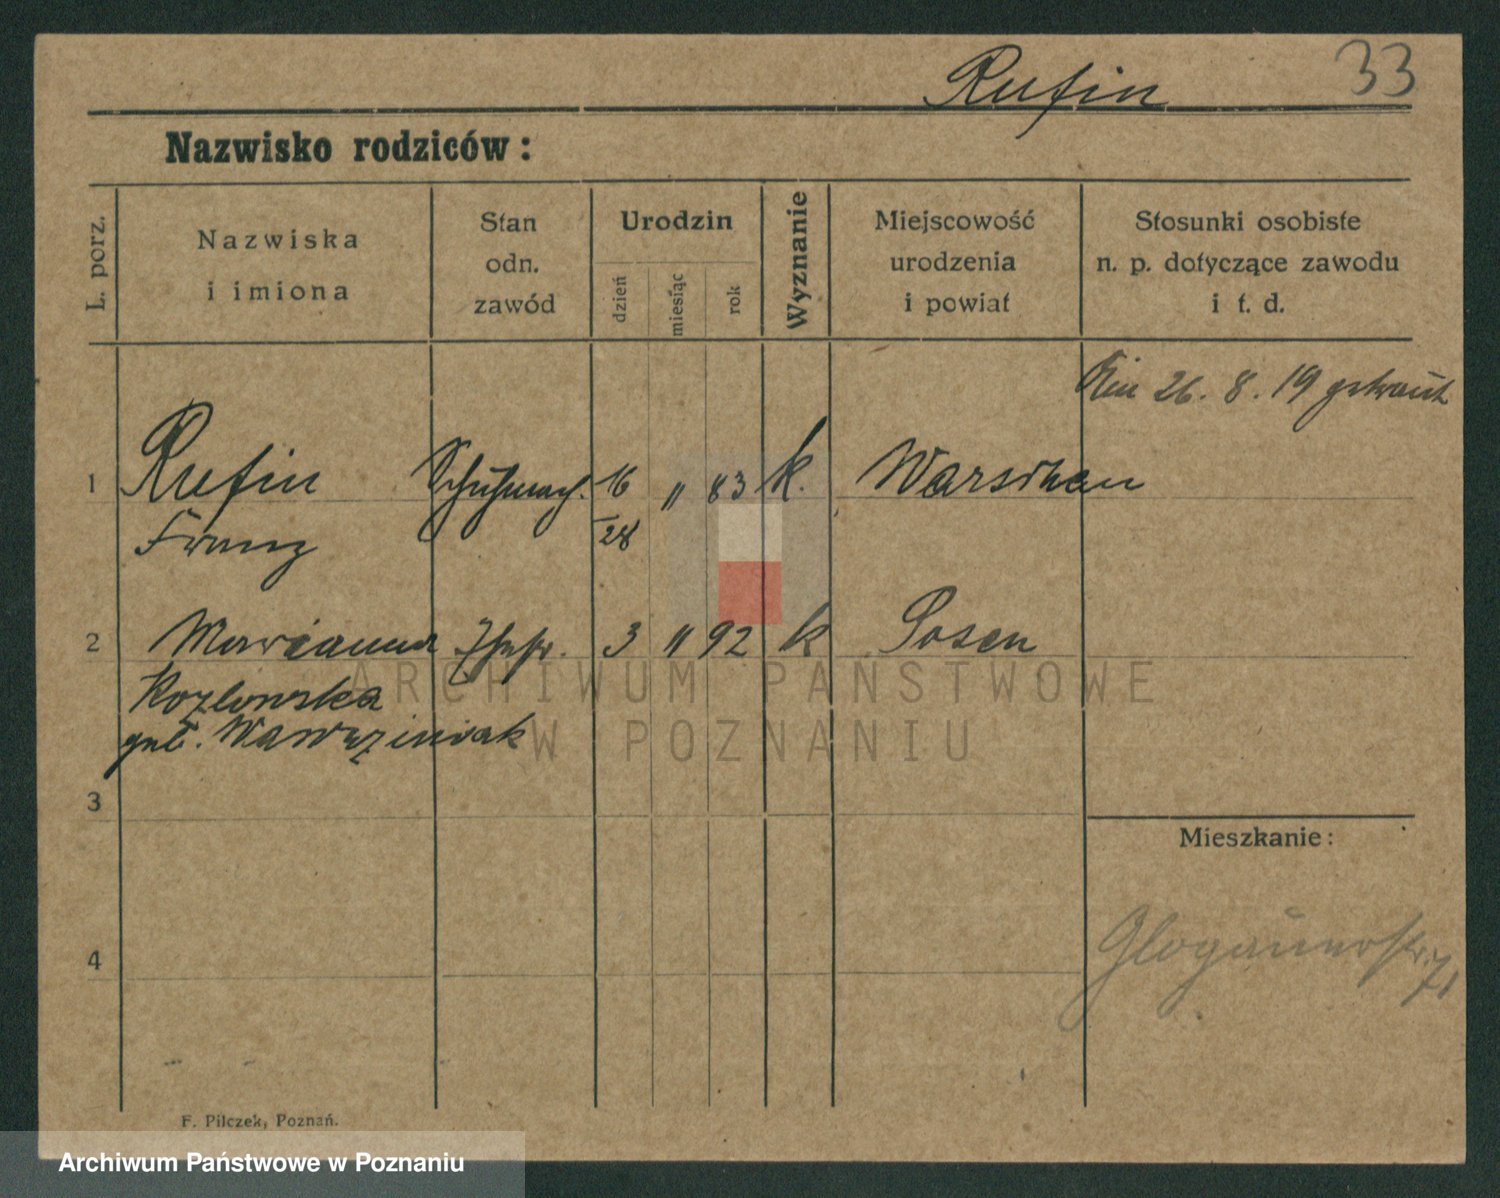 Rufin 33
Nazwisko rodziców:
L. porz.
Nazwiska
i imiona
Stan
odn.
zawód
Urodzin
dzień
miesiąc
rok
Wyznanie
Miejscowość
urodzenia
i powiat
Stosunki osobiste
n. p. dotyczące zawodu
i t. d.
26. 8. 19 getraut
1 Rufin Schuhmach. 16 " 83 k. Warschau
Franz 28
2 Marianna 3 " 92 k Posen
Kozlowska
geb. Wawrziniak
3
Mieszkanie:
4
Glogauerstr. 71
F. Pilczek, Poznań.
ARCHIWUM PAŃSTWOWE
W POZNANIU
Archiwum Państwowe w Poznaniu